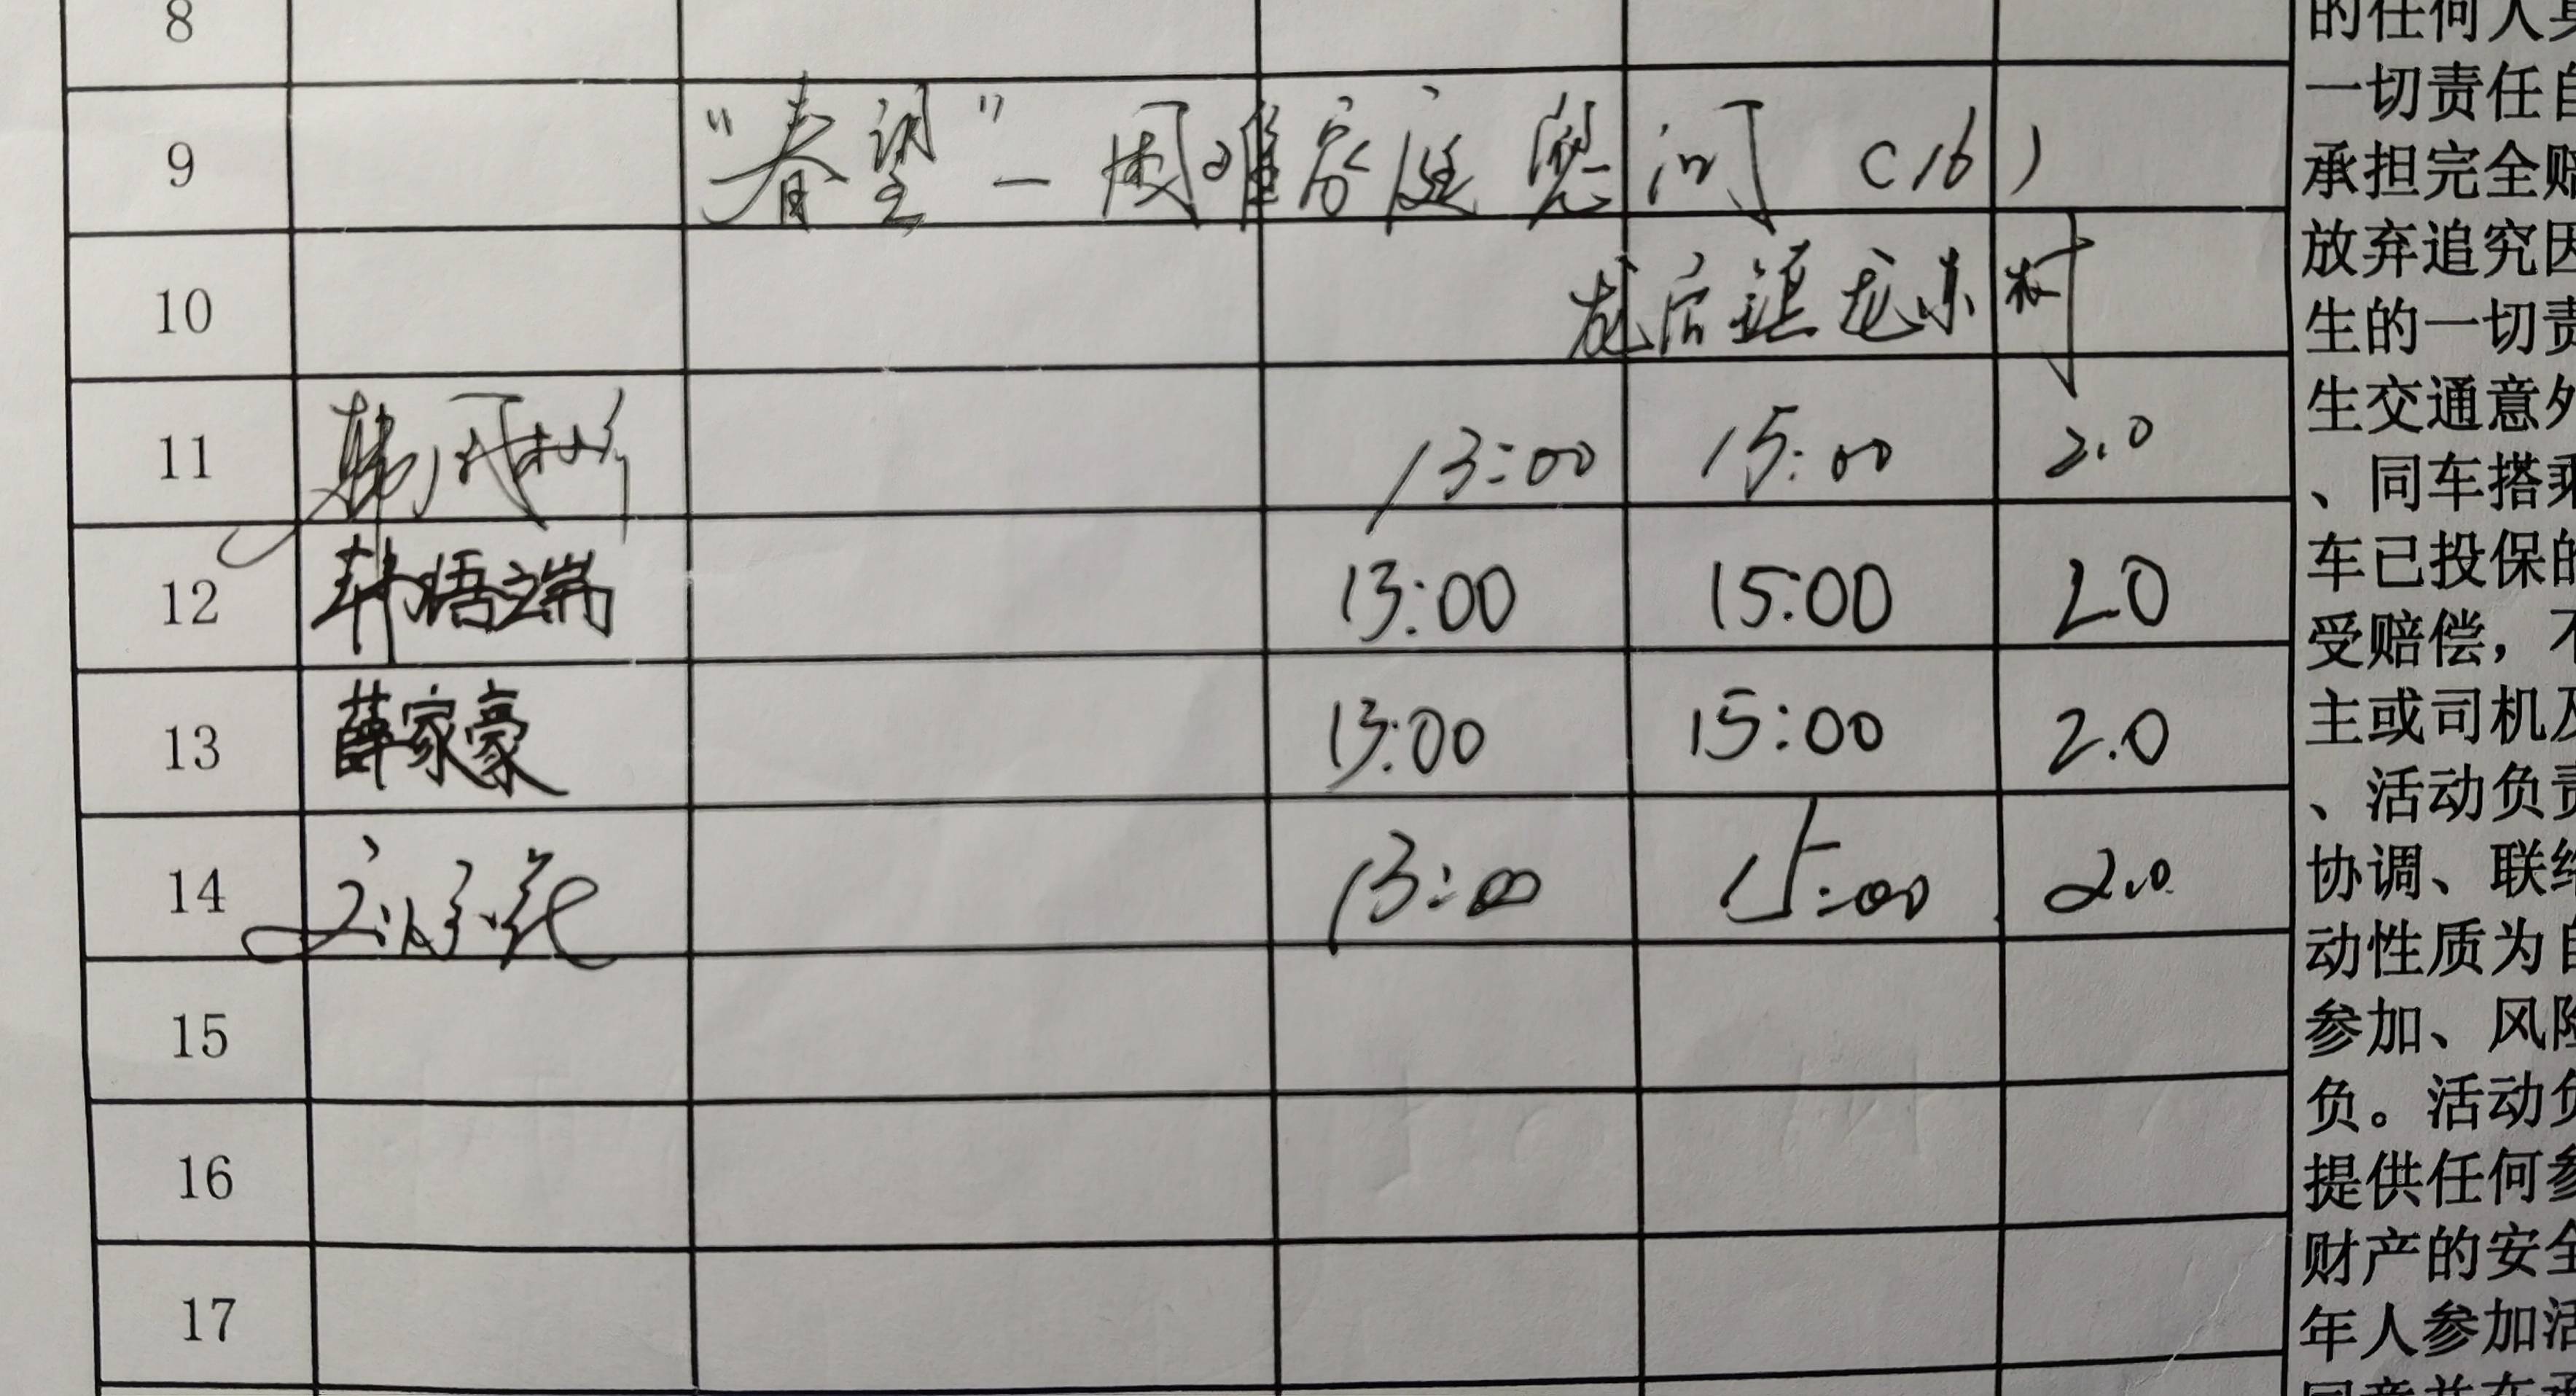 8
9 “春望”—困难家庭慰问 (16)
10 龙后镇龙东村
11 13:00 15:00 2.0
12 韩语端 13:00 15:00 2.0
13 薛家豪 13:00 15:00 2.0
14 13:00 15:00 2.0
15
16
17
的任何人
一切责任自
承担完全赔
放弃追究因
生的一切责
生交通意外
、同车搭乘
车已投保的
受赔偿，不
主或司机及
、活动负责
协调、联络
动性质为自
参加、风险
负。活动负
提供任何参
财产的安全
年人参加活